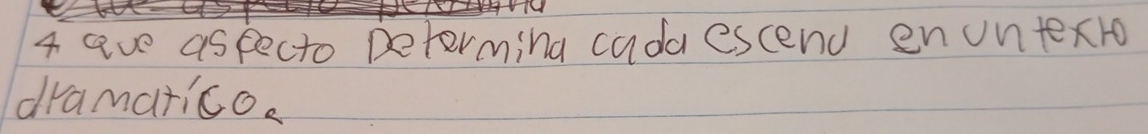 4 que aspecto Determina cada escena en un texto
dramatico.